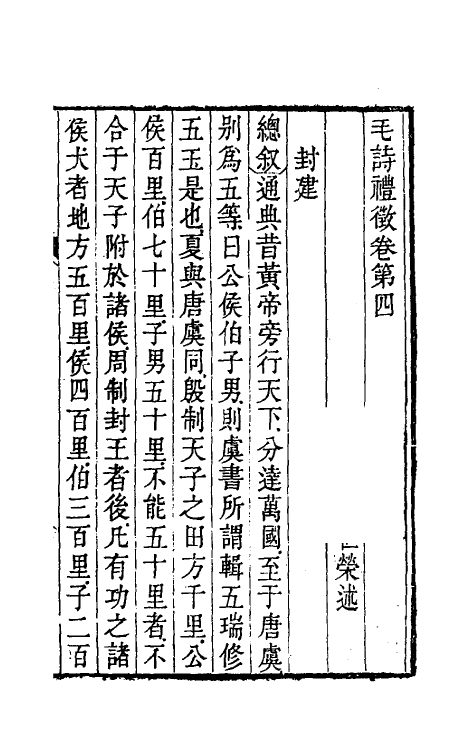 毛詩禮徵卷第四
榮述
封建
總叙通典昔黃帝旁行天下分達萬國至于唐虞
別爲五等曰公侯伯子男則虞書所謂輯五瑞修
五玉是也夏與唐虞同殷制天子之田方千里公
侯百里伯七十里子男五十里不能五十里者不
合于天子附於諸侯周制封王者後凡有功之諸
侯大者地方五百里侯四百里伯三百里子二百